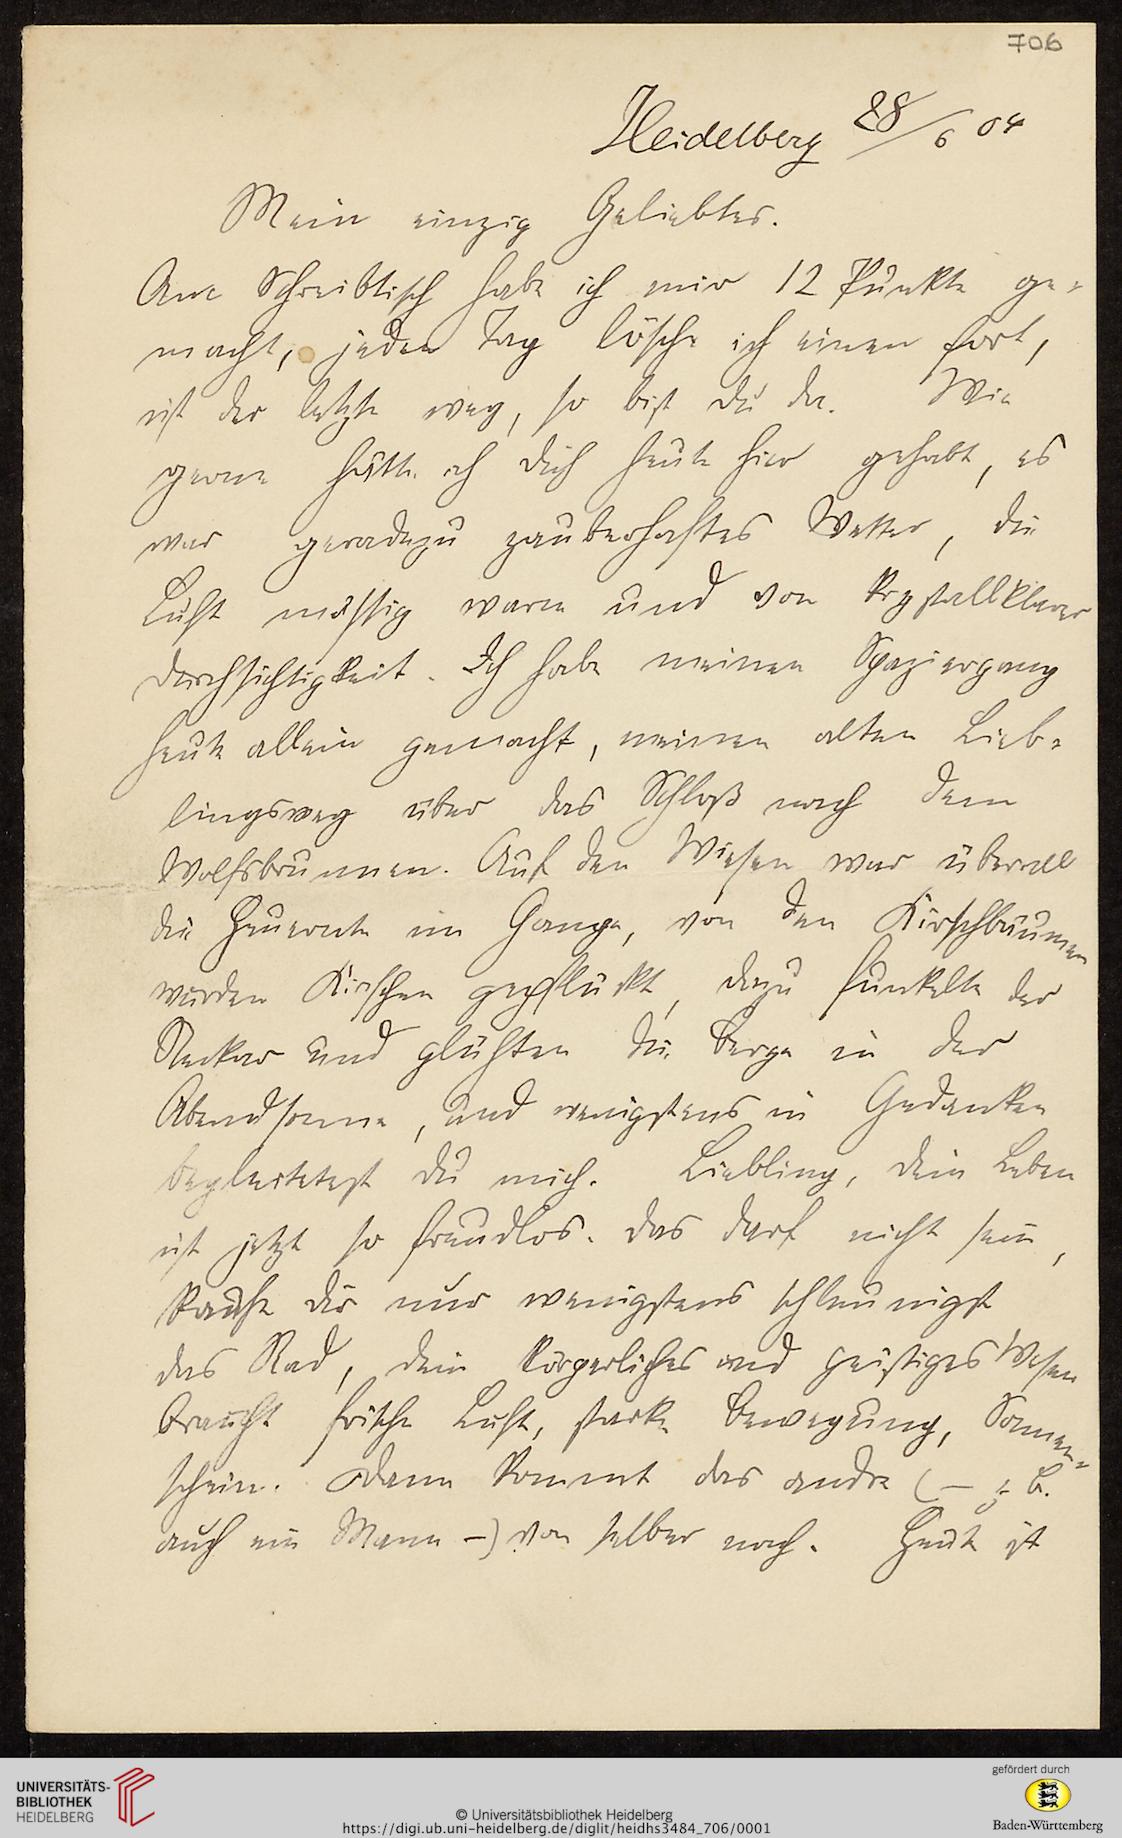 706
Heidelberg 28/6 04
Mein einzig Geliebtes.
Am Schreibtisch habe ich mir 12 Punkte ge-
macht, jeden Tag lösche ich einen fort,
ist der letzte weg, so bist Du da. Wie
gerne hätte ich Dich heute hier gehabt, es
war geradezu zauberhaftes Wetter, die
Luft mässig warm und von krystallklarer
Durchsichtigkeit. Ich habe meinen Spaziergang
heute allein gemacht, meinen alten Lieb-
lingsweg über das Schloß nach dem
Wolfsbrunnen. Auf den Wiesen war überall
die Heuernte im Gange, von den Kirschbäumen
wurden Kirschen gepflückt, dazu funkelte der
Neckar und glühten die Berge in der
Abendsonne, und wenigstens in Gedanken
begleitetest Du mich. Liebling, Dein Leben
ist jetzt so freudlos. Das darf nicht sein,
kaufe Dir nur wenigstens schleunigst
das Rad, Dein körperliches und geistiges Wesen
braucht frische Luft, starke Bewegung, Sonnen-
schein. Dann kommt das andre (– z. B.
auch ein Mann –) von selber nach. Heute ist
UNIVERSITÄTS-
BIBLIOTHEK
HEIDELBERG
© Universitätsbibliothek Heidelberg
https://digi.ub.uni-heidelberg.de/diglit/heidhs3484_706/0001
gefördert durch
Baden-Württemberg